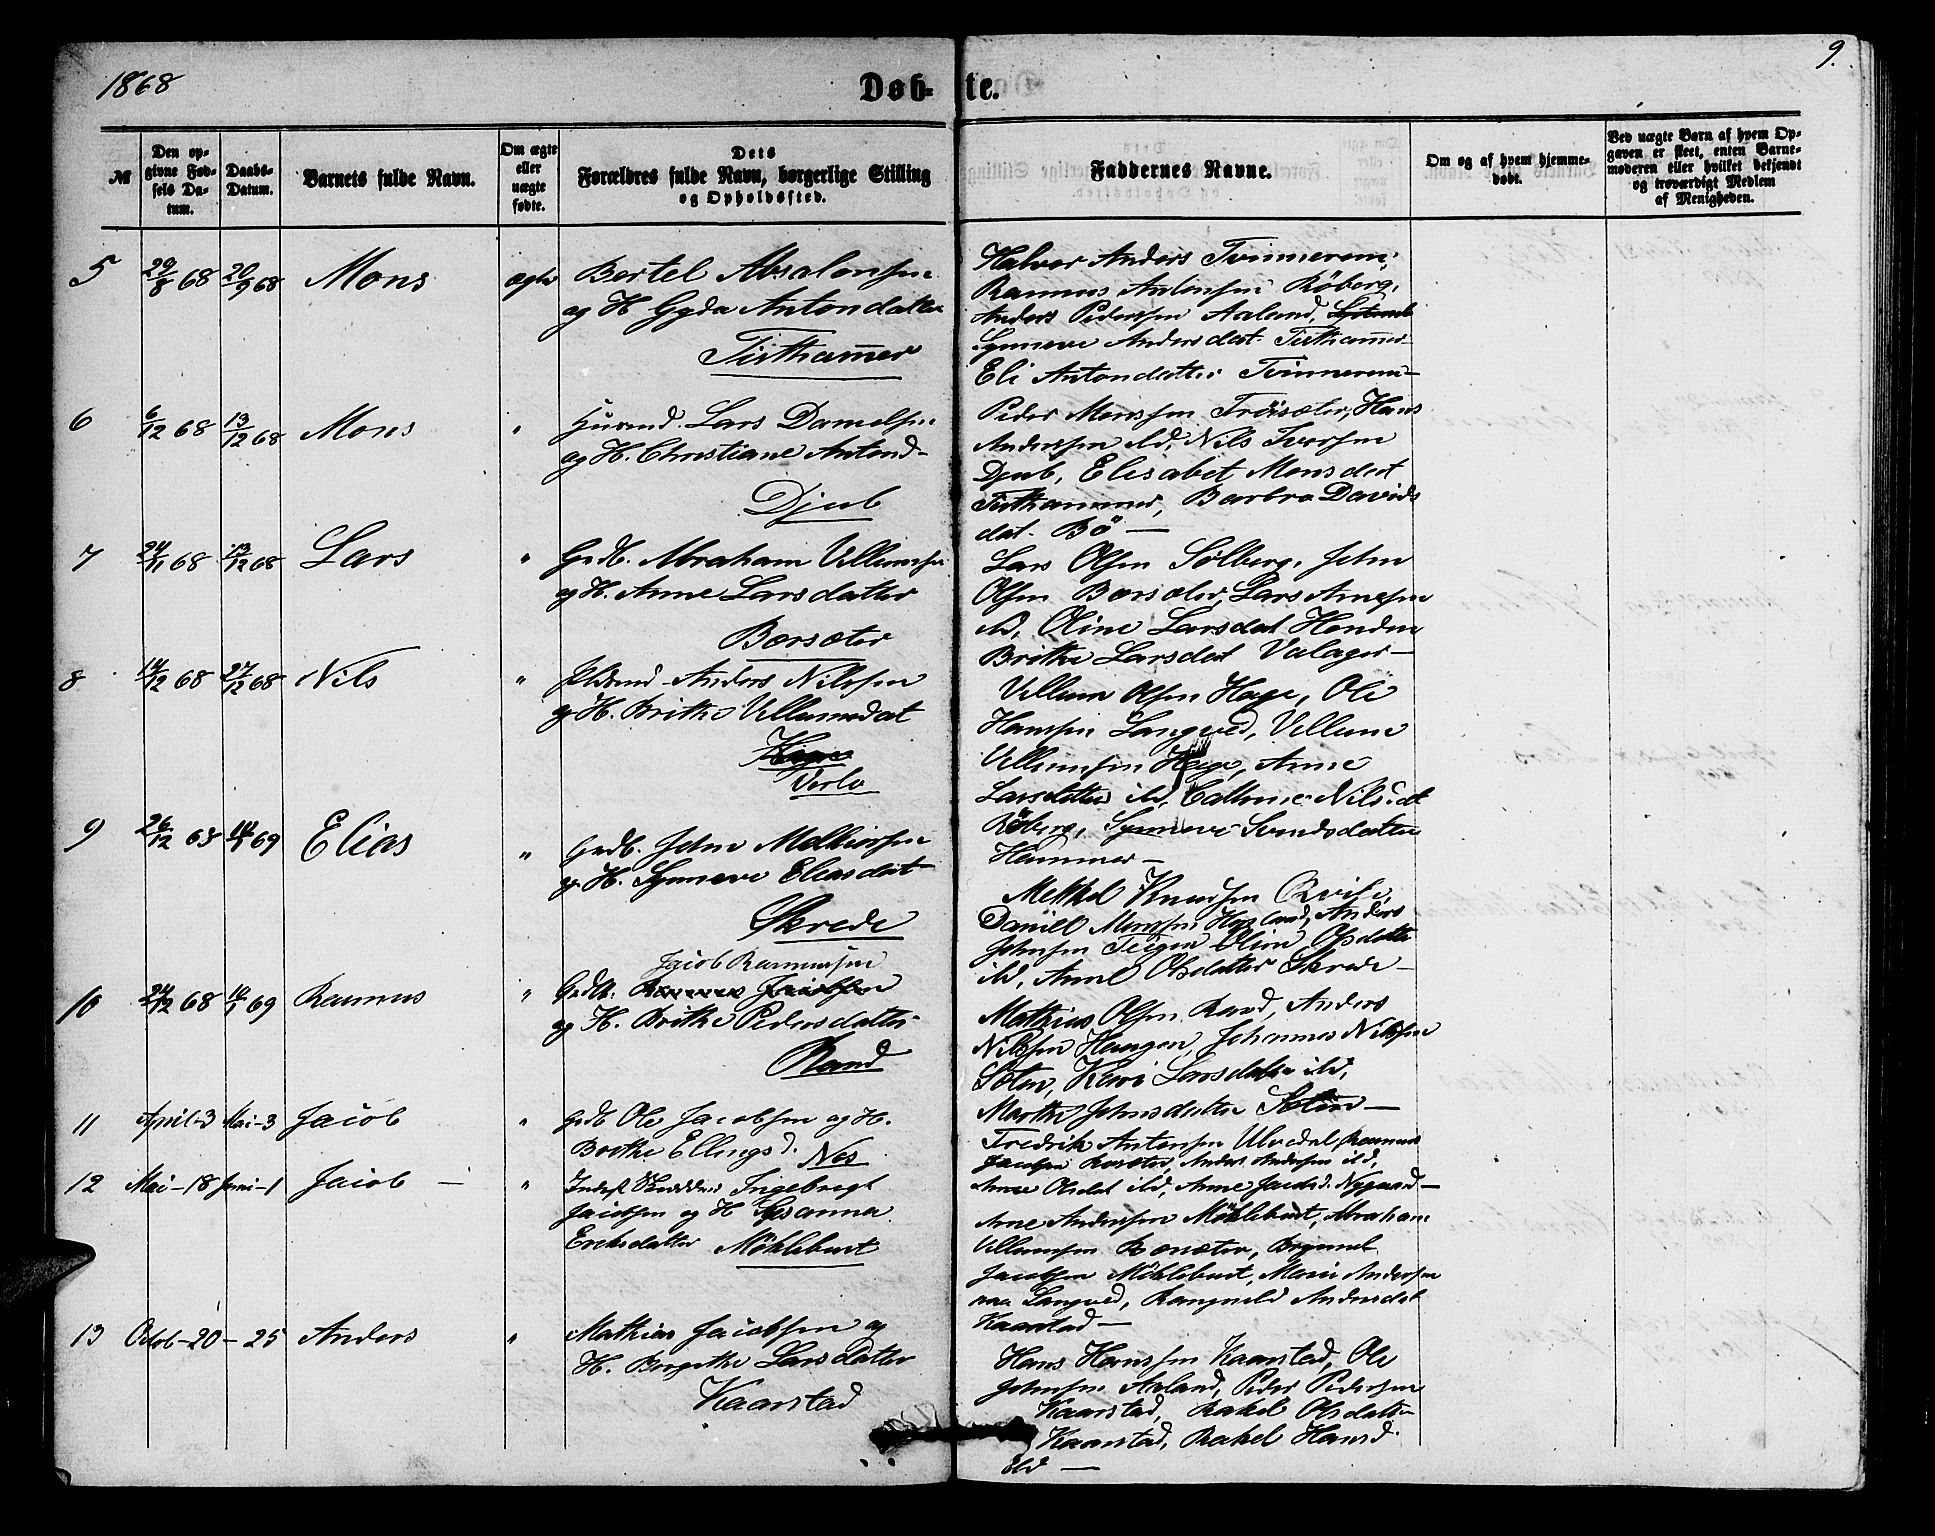 1868
Døb-
te.
9.
№
Den op-
givne Fød-
sels Da-
tum.
Daabs-
Datum.
Barnets fulde Navn.
Om ægte
eller
uægte
fødte.
Dets
Forældres fulde Navn, borgerlige Stilling
og Opholdssted.
Faddernes Navne.
Om og af hvem hjemme-
døbt.
Ved uægte Børn af hvem Op-
gaven er skeet, enten Barne-
moderen eller hvilket bekjendt
og troværdigt Medlem
af Menigheden.
5 29/8 68 20/9 68 Mons ægte Bertel Absalonsen
og H Gyda Antondatter
Tistham̄er
Halvor Anders Tvinnereim,
Rasmus Antonsen Röberg,
Anders Pedersen Aaland,
Synneve Andersdat. Tistham̄er
Eli Antondatter Tvinnereim
6 6/12 68 13/12 68 Mons " Lars Danielsen
og H. Christiane Antond-
Djub
Peder Monssen Tröisæter, Hans
Anderssen ild, Nils Iversen
Djub, Elisabet Monsdat
Tisthammer, Barbro Davids
dat. Bö —
7 24/11 68 13/12 68 Lars " Grdb. Abraham Villumsen
og H. Anne Larsdatter
Børsæter
Lars Olsen Solberg, John
Olsen Børsæter, Lars Arnesen
ild, Oline Larsdat Henden
Brithe Larsdat Valager —
8 14/12 68 27/12 68 Nils " Anders Nilssen
og H. Brithe Villumsdat
Hage
Verlo
Villum Olsen Hage, Ole
Hanssen Langved, Villum
Villumsen Hage, Anne
Larsdatter ild, Cathrine Nilsdat
Röberg, Synneve Svendsdatter
Hammer —
9 26/12 68 10/1 69 Elias " Grdb. John Melkiorsen
og H. Synneve Eliasdat
Skrede
Melkel Knudsen Qvile,
Daniel Monssen Hopland, Anders
Johnsen Teigen Oline Olsdatter
ild, Anne Olsdatter Skrede —
10 24/12 68 10/1 69 Rasmus " Jacob Rasmussen
Grdb. Rasmus Jacobsen
og H. Brithe Pedersdatter
Rand
Mathias Olsen Rand, Anders
Nilssen Haugen, Johannes Nilssen
Sæten, Kari Larsdatter ild,
Marthe Johnsdatter Sæten —
11 April-3 Mai-3 Jacob " Grdb Ole Jacobsen og H.
Borthe Ellingsd. Nes
Fredrik Antonsen Ulvedal, Rasmus
Jacobsen Rosæter, Anders Andersen ild,
Anne Olsdat ild, Anne Jacobsd. Nygaard —
12 Mai-18 Juni-1 Jacob — " Inderst Ingebregt
Jacobsen og H Susanna
Ericksdatter Möklebust
Arne Anderssen Möklebust, Abraham
Villumsen
Jacobsen Möklebust, Marie Andersen
paa Langved, Rangneld Andersdat
Kaarstad —
13 Octob-20 — 25 Anders " Mathias Jacobsen og
H. Borgethe Larsdatter
Kaarstad
Hans Hanssen Kaarstad, Ole
Johnsen Aaland, Peder Pedersen
Kaarstad, Rakel Olsdatter
Kaarstad, Rakel Hansd.
Ild —